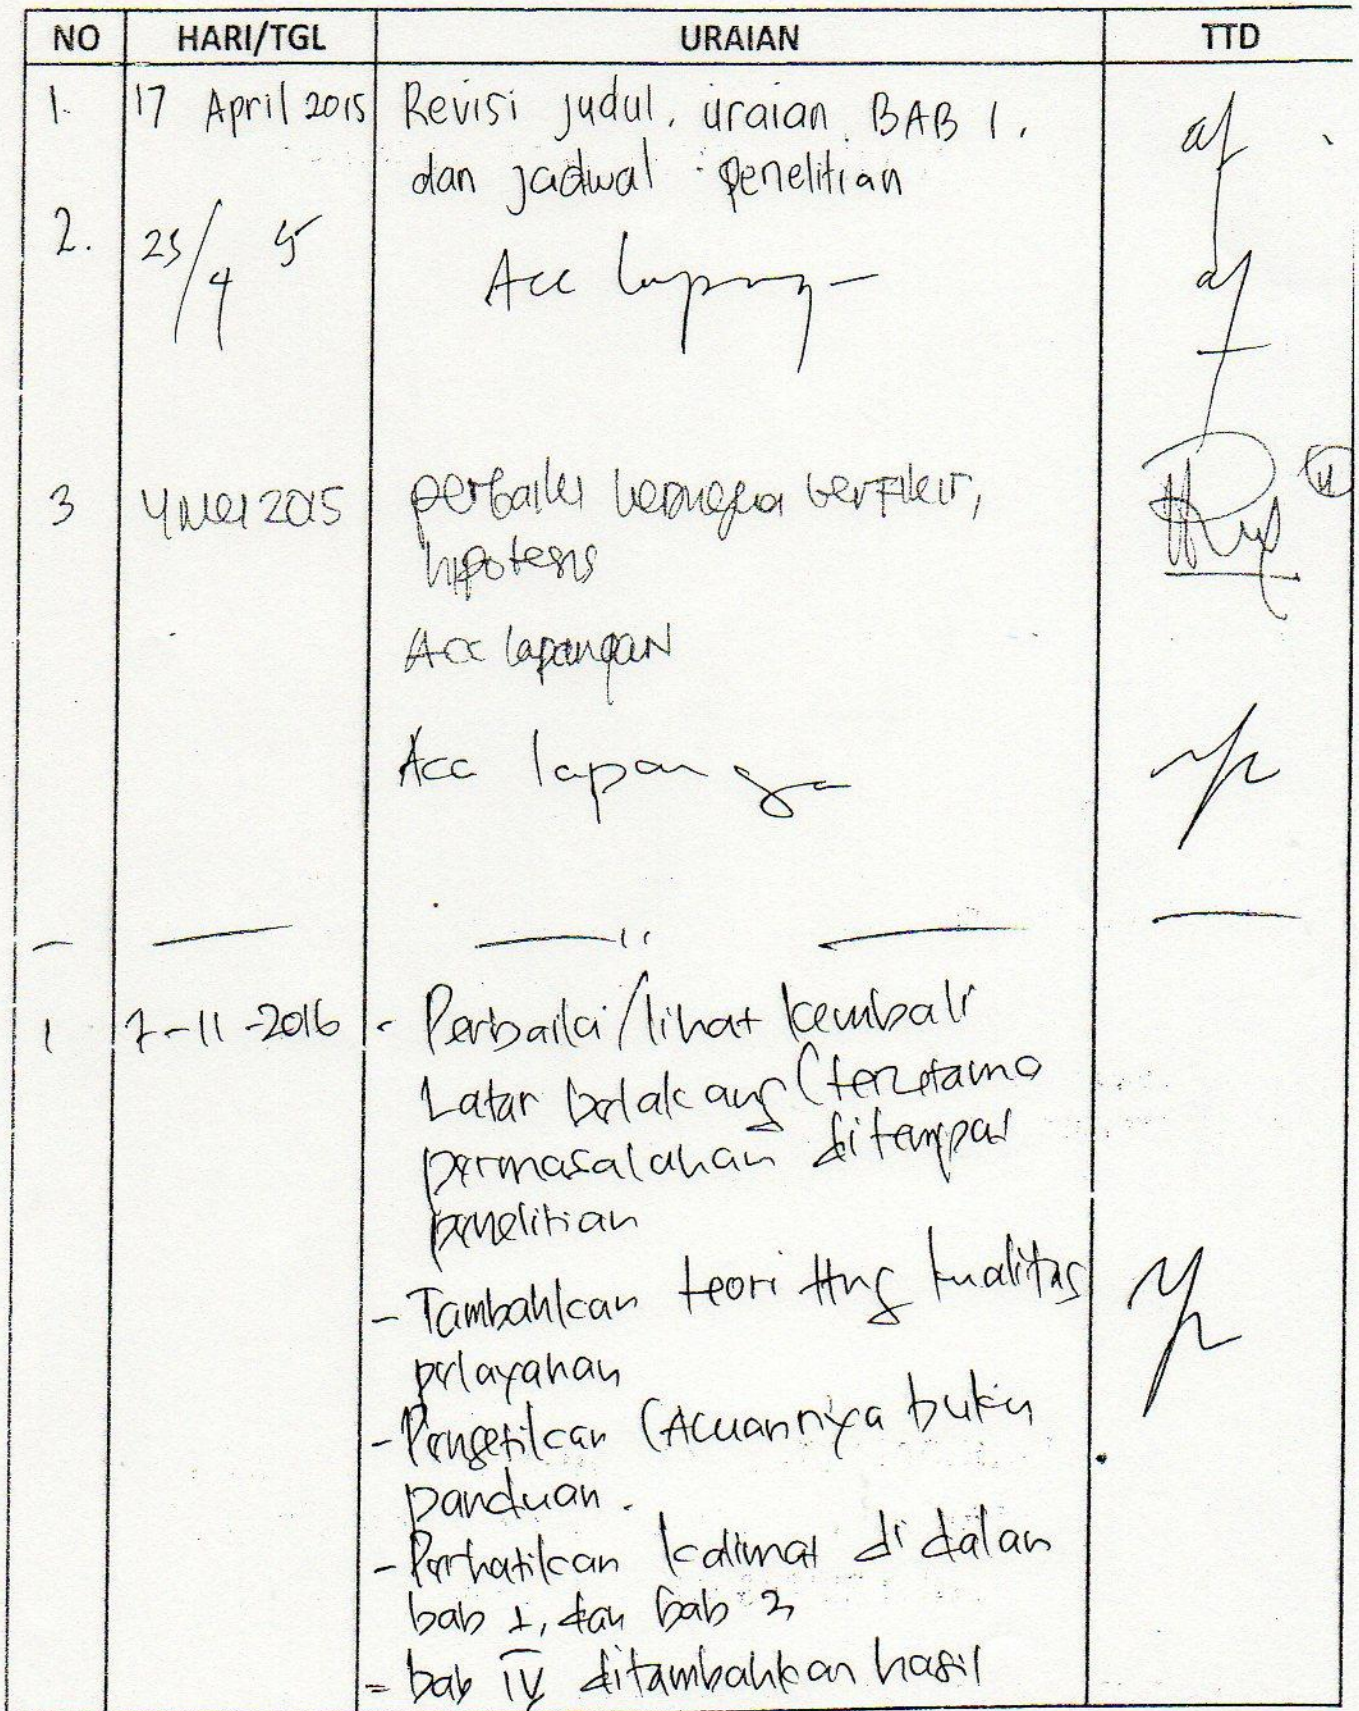 NO HARI/TGL URAIAN TTD
1. 17 April 2015 Revisi judul, uraian BAB 1,
dan jadwal penelitian
2. 25/4 15 Acc lapang
3 4 Mei 2015 perbaiki kerangka berfikir,
hipotesis
Acc lapangan
Acc lapanga
1 7-11-2016 - Perbaiki/lihat kembali
Latar belakang (terutama
permasalahan ditempat
penelitian
- Tambahkan teori ttng kualitas
pelayanan
- Pengetikan (Acuannya buku
panduan.
- Perhatikan kalimat di dalam
bab 1, dan bab 2
= bab IV ditambahkan hasil